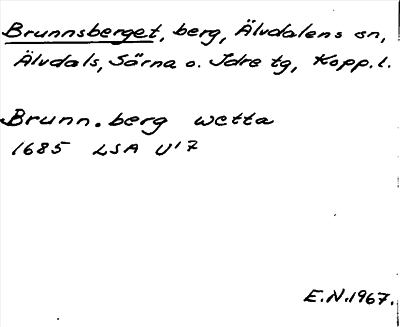 Brunnsberget, berg, Älvdalens sn,
Älvdals, Särna o. Idre tg, Kopp. l.
Brunn. berg wetta
1685 LSA U' 7
E.N. 1967.